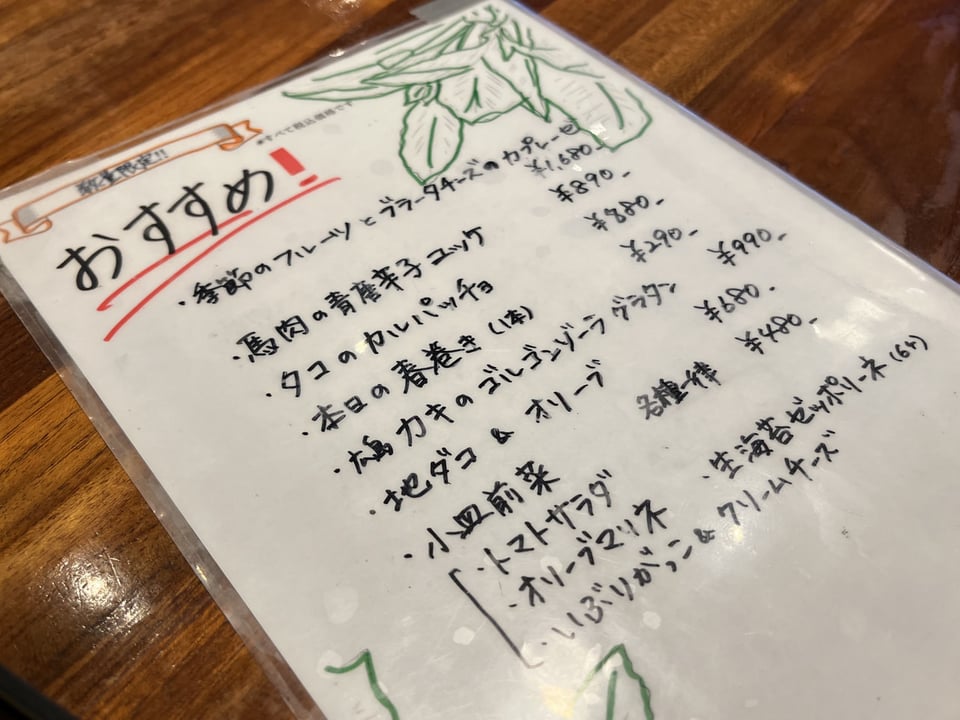 数量限定!!
*すべて税込価格です
おすすめ!
・季節のフルーツとブラータチーズのカプレーゼ ¥1,680-
・馬肉の青唐辛子ユッケ ¥890-
・タコのカルパッチョ ¥880-
・本日の春巻き(1本) ¥290-
・広島カキのゴルゴンゾーラグラタン ¥990-
・地ダコ & オリーブ ¥680-
・小皿前菜 各種一律 ¥480-
・トマトサラダ
・オリーブマリネ ・生海苔ゼッポリーネ(6ヶ)
・いぶりがっこ&クリームチーズ